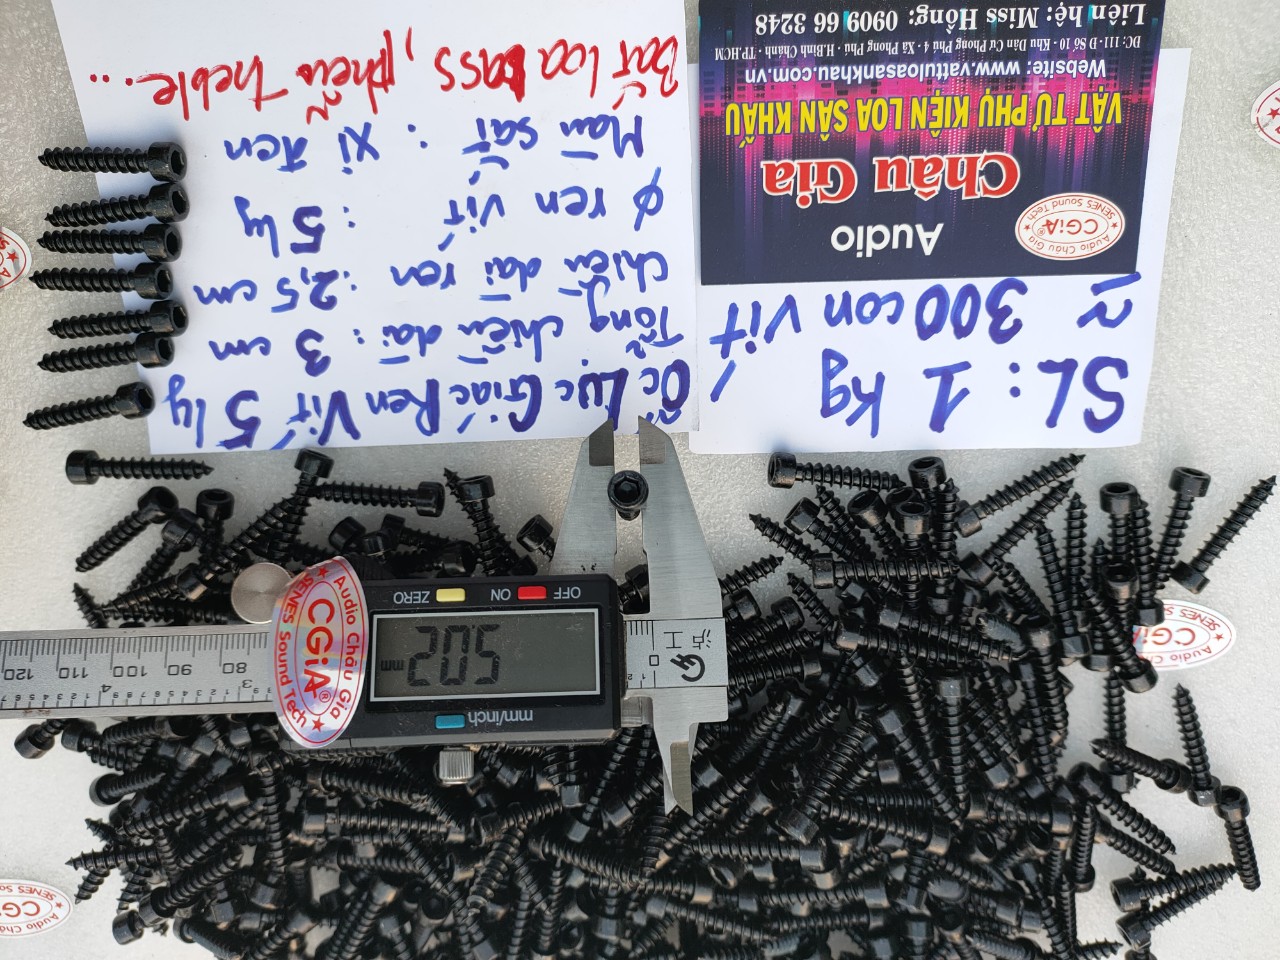 Ốc Lục Giác Ren Vít 5 ly
Tổng chiều dài: 3 cm
chiều dài ren : 2,5 cm
φ ren vít : 5 ly
Màu sắt : xi đen
Bắt loa bass, phểu treble...
SL: 1 kg
≈ 300 con vít
CGiA®
Audio Châu Gia
SENES Sound Tech
Audio
Châu Gia
VẬT TƯ PHỤ KIỆN LOA SÂN KHẤU
Website: www.vattuloasankhau.com.vn
ĐC: 111 - D Số 10 - Khu Dân Cư Phong Phú 4 - Xã Phong Phú - H.Bình Chánh - TP.HCM
Liên hệ: Miss Hồng: 0909 66 3248
mm/inch
5.02 mm
OFF ON ZERO
Audio Châu Gia
CGiA®
SENES Sound Tech
80 90 100 110 120